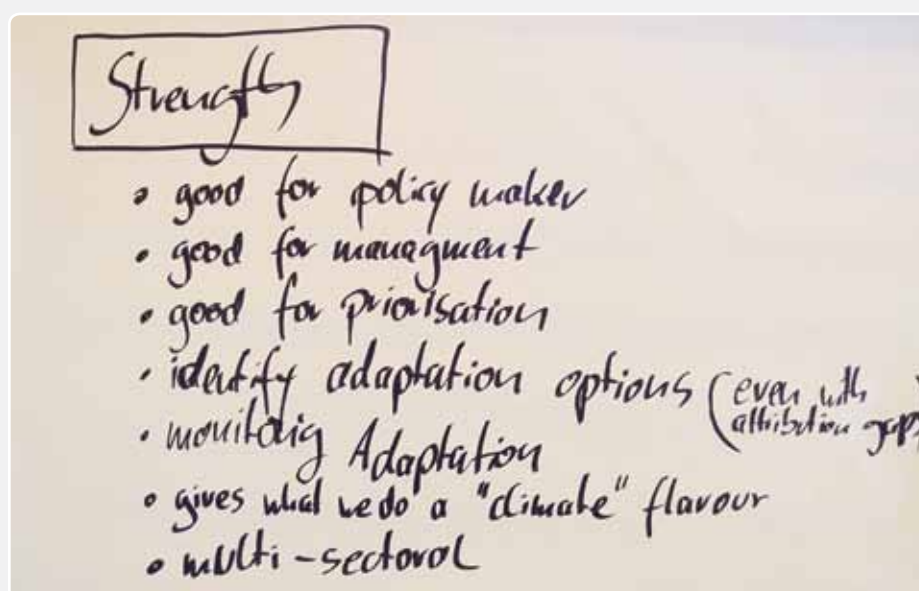 Strength
• good for policy maker
• good for managment
• good for priorisation
• identify adaptation options (even with
attribution gaps)
• monitoring Adaptation
• gives what we do a "climate" flavour
• multi-sectoral